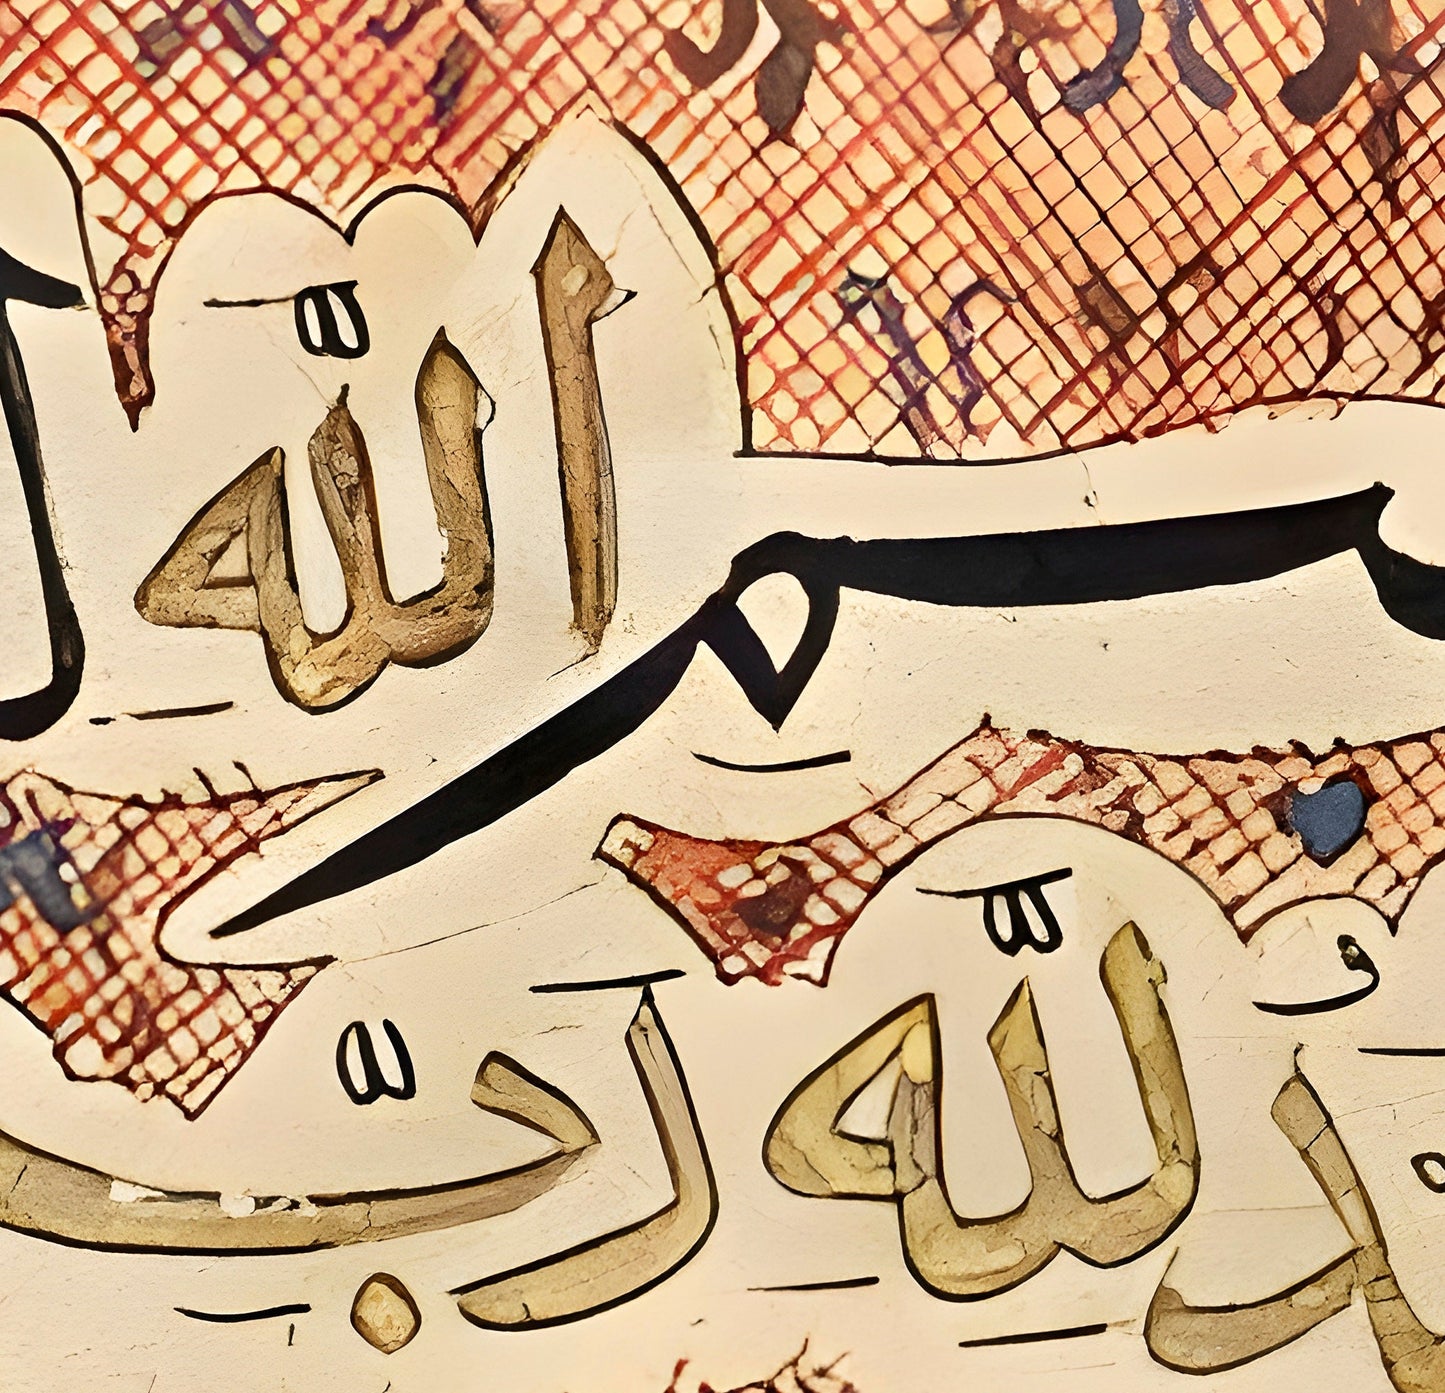 سمِ اللَّهِ ال
مْدُ لِلَّهِ رَبِّ